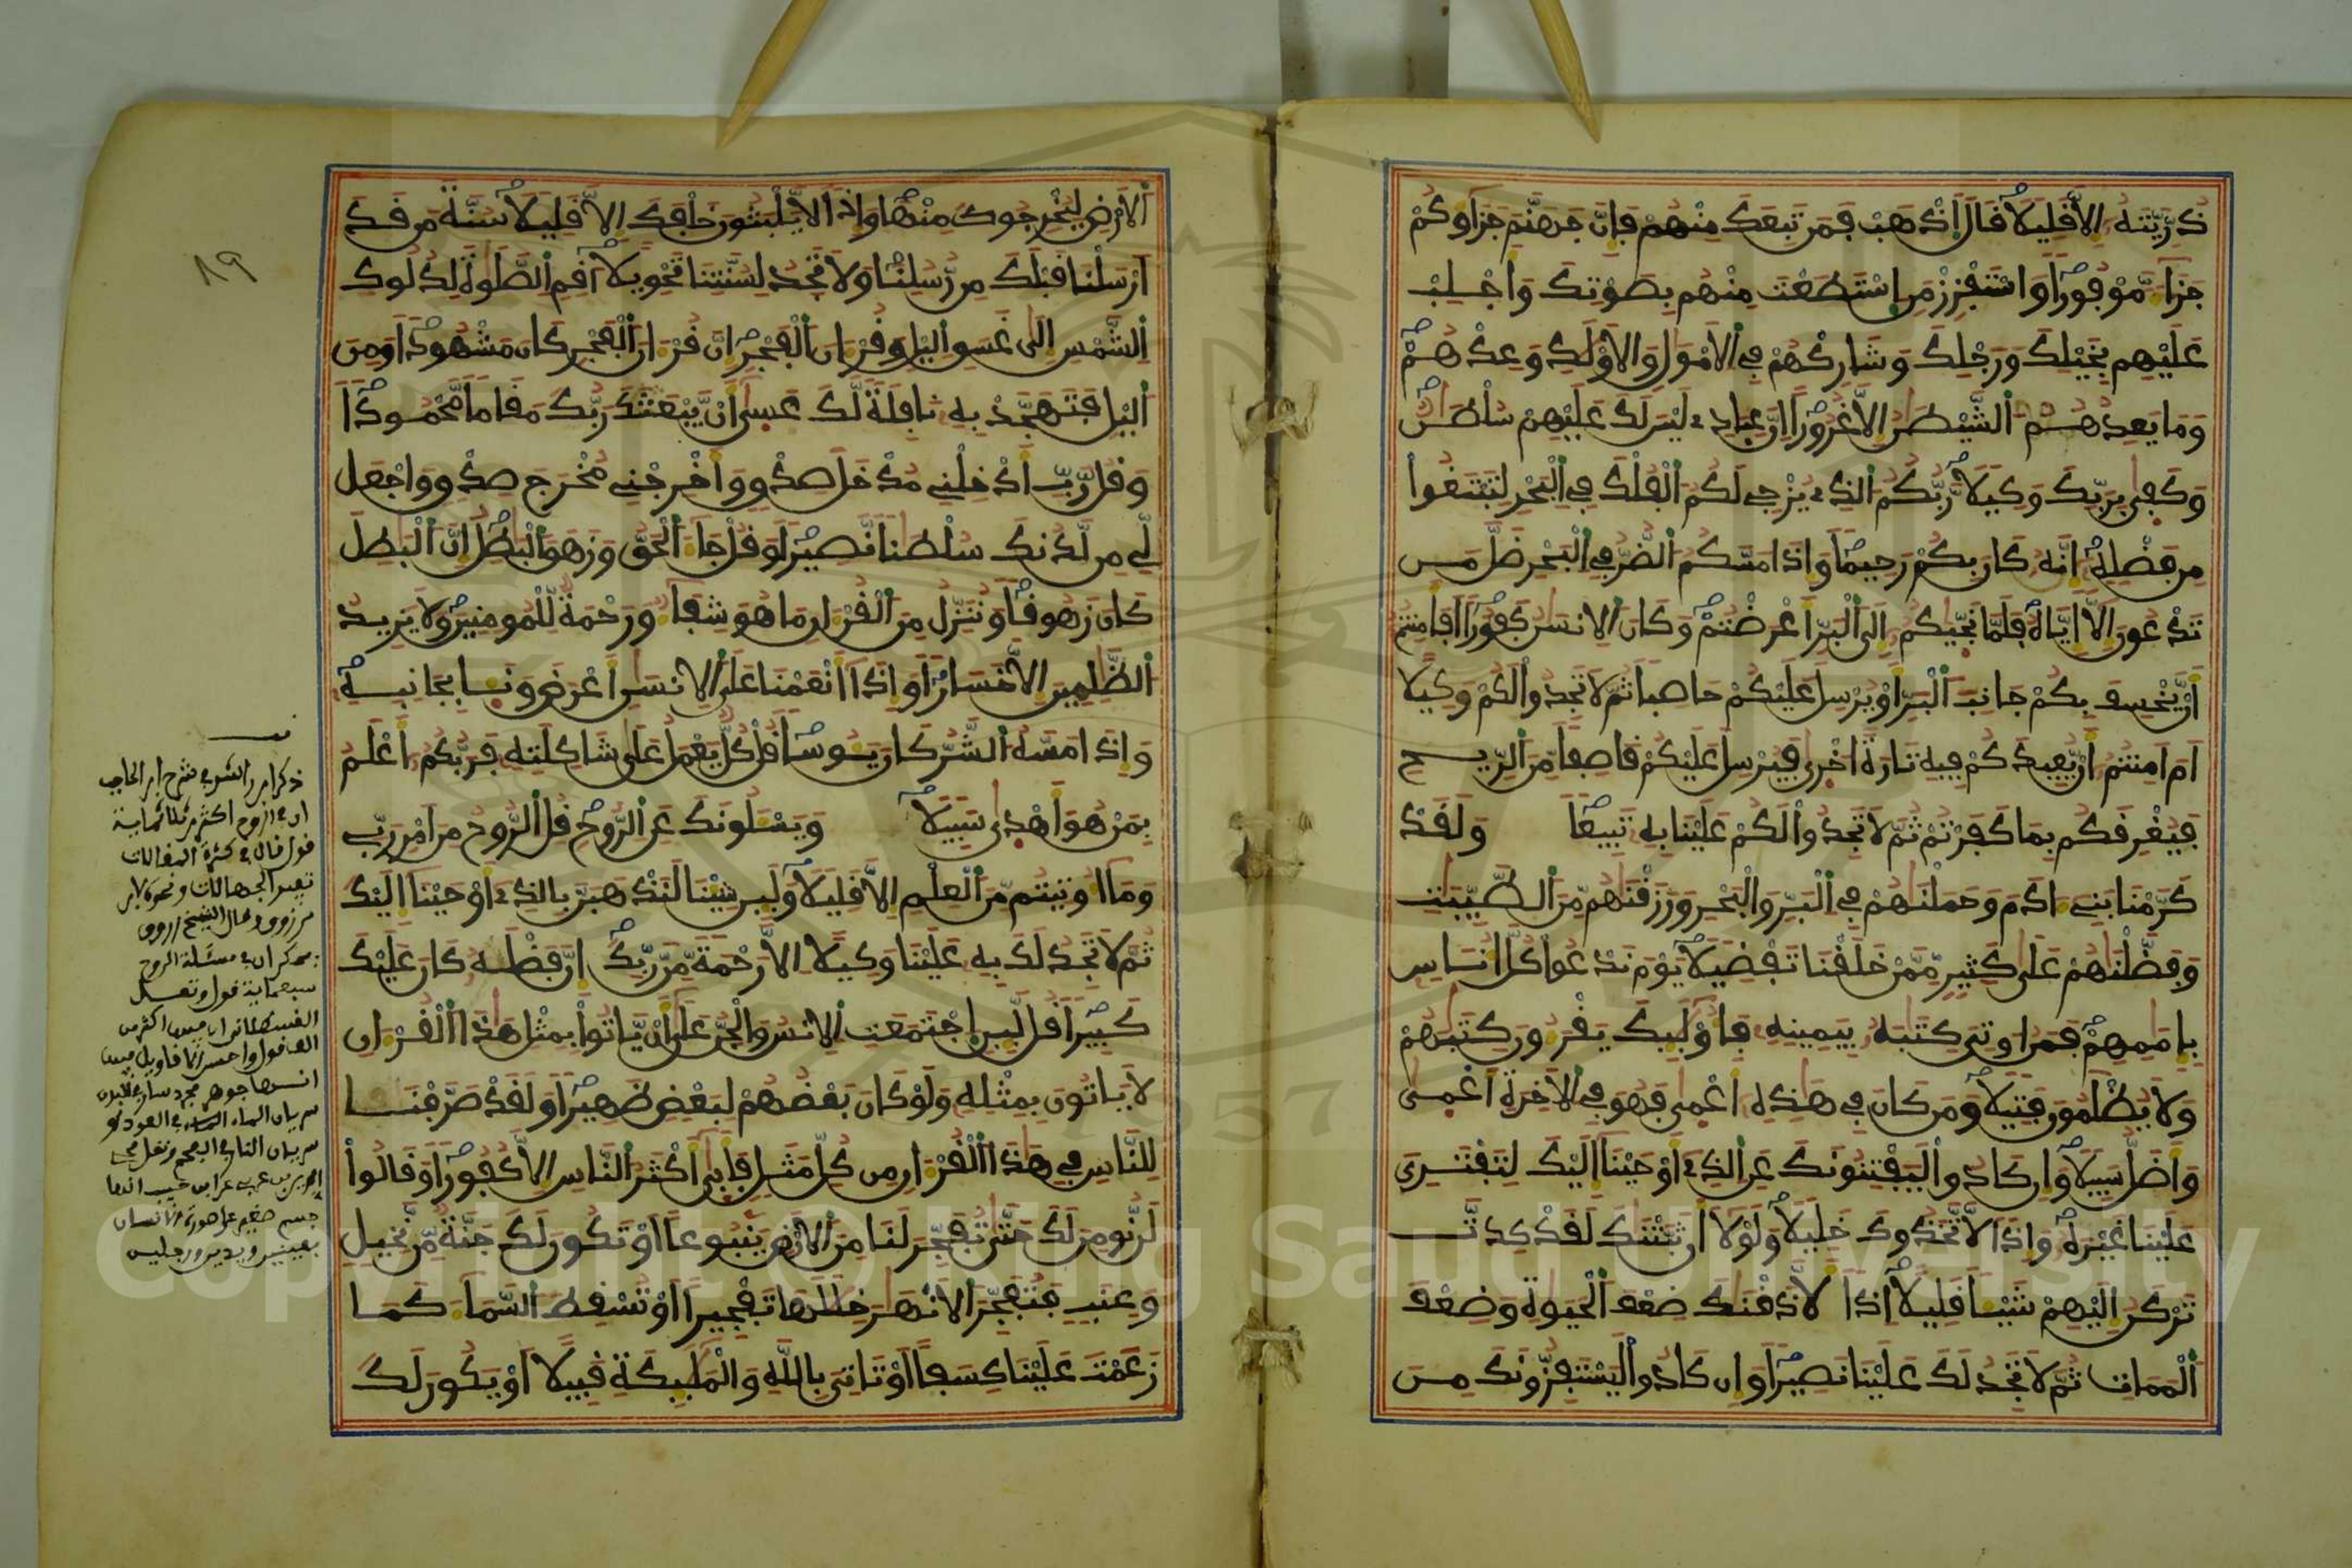 ذُرِّيَّتَهُۥ إِلَّا قَلِيلًا قَالَ اَذْهَبْ فَمَن تَبِعَكَ مِنْهُمْ فَإِنَّ جَهَنَّمَ جَزَآؤُكُمْ
جَزَآءً مَّوْفُورًا وَاسْتَفْزِزْ مَنِ اِسْتَطَعْتَ مِنْهُم بِصَوْتِكَ وَأَجْلِبْ
عَلَيْهِم بِخَيْلِكَ وَرَجْلِكَ وَشَارِكْهُمْ فِي اِلَامْوَٰلِ وَالَاوْلَٰدِ وَعِدْهُمْ
وَمَا يَعِدُهُمُ اُلشَّيْطَٰنُ إِلَّا غُرُورًا اِنَّ عِبَادِے لَيْسَ لَكَ عَلَيْهِمْ سُلْطَٰنٌ
وَكَفَىٰ بِرَبِّكَ وَكِيلًا رَّبُّكُمُ اُلذِے يُزْجِے لَكُمُ اُلْفُلْكَ فِي اِلْبَحْرِ لِتَبْتَغُوا
مِن فَضْلِهِ إِنَّهُۥ كَانَ بِكُمْ رَحِيمًا وَإِذَا مَسَّكُمُ اُلضُّرُّ فِي اِلْبَحْرِ ضَلَّ مَن
تَدْعُونَ إِلَّا إِيَّاهُ فَلَمَّا نَجَّيٰكُمُ إِلَى اَلْبَرِّ أَعْرَضْتُمْ وَكَانَ اَلِانسَٰنُ كَفُورًا اَفَأَمِنتُمُ
أَنْ يَّخْسِفَ بِكُمْ جَانِبَ اَلْبَرِّ أَوْ يُرْسِلَ عَلَيْكُمْ حَاصِبًا ثُمَّ لَا تَجِدُوا لَكُمْ وَكِيلًا
اَمَ اَمِنتُمُ أَنْ يُّعِيدَكُمْ فِيهِ تَارَةً اُخْرَىٰ فَيُرْسِلَ عَلَيْكُمْ قَاصِفًا مِّنَ اَلرِّيحِ
فَيُغْرِقَكُم بِمَا كَفَرْتُمْ ثُمَّ لَا تَجِدُوا لَكُمْ عَلَيْنَا بِهِۦ تَبِيعًا وَلَقَدْ
كَرَّمْنَا بَنِےٓ ءَادَمَ وَحَمَلْنَٰهُمْ فِي اِلْبَرِّ وَالْبَحْرِ وَرَزَقْنَٰهُم مِّنَ اَلطَّيِّبَٰتِ
وَفَضَّلْنَٰهُمْ عَلَىٰ كَثِيرٍ مِّمَّنْ خَلَقْنَا تَفْضِيلًا يَوْمَ نَدْعُوا كُلَّ أُنَاسٍ
بِإِمَٰمِهِمْ فَمَنُ اوتِيَ كِتَٰبَهُۥ بِيَمِينِهِۦ فَأُوْلَٰٓئِكَ يَقْرَءُونَ كِتَٰبَهُمْ
وَلَا يُظْلَمُونَ فَتِيلًا وَمَن كَانَ فِي هَٰذِهِۦٓ أَعْمَىٰ فَهُوَ فِي اِلَاخِرَةِ أَعْمَىٰ
وَأَضَلُّ سَبِيلًا وَإِن كَادُوا لَيَفْتِنُونَكَ عَنِ اِلذِےٓ أَوْحَيْنَآ إِلَيْكَ لِتَفْتَرِيَ
عَلَيْنَا غَيْرَهُ وَإِذًا لَّاتَّخَذُوكَ خَلِيلًا وَلَوْلَآ أَن ثَبَّتْنَٰكَ لَقَدْ كِدتَّ
تَرْكَنُ إِلَيْهِمْ شَيْـًٔا قَلِيلًا اِذًا لَّأَذَقْنَٰكَ ضِعْفَ اَلْحَيَوٰةِ وَضِعْفَ
اَلْمَمَاتِ ثُمَّ لَا تَجِدُ لَكَ عَلَيْنَا نَصِيرًا وَإِن كَادُوا لَيَسْتَفِزُّونَكَ مِنَ
٨٩
اَلَارْضِ لِيُخْرِجُوكَ مِنْهَا وَإِذًا لَّا يَلْبَثُونَ خَلْفَكَ إِلَّا قَلِيلًا سُنَّةَ مَن قَدَ
اَرْسَلْنَا قَبْلَكَ مِن رُّسُلِنَا وَلَا تَجِدُ لِسُنَّتِنَا تَحْوِيلًا اَقِمِ اِلصَّلَوٰةَ لِدُلُوكِ
اِلشَّمْسِ إِلَىٰ غَسَقِ اِليْلِ وَقُرْءَانَ اَلْفَجْرِ إِنَّ قُرْءَانَ اَلْفَجْرِ كَانَ مَشْهُودًا وَمِنَ
اَليْلِ فَتَهَجَّدْ بِهِۦ نَافِلَةً لَّكَ عَسَىٰٓ أَنْ يَّبْعَثَكَ رَبُّكَ مَقَامًا مَّحْمُودًا
وَقُل رَّبِّ أَدْخِلْنِے مُدْخَلَ صِدْقٍ وَأَخْرِجْنِے مُخْرَجَ صِدْقٍ وَاجْعَل
لِّے مِن لَّدُنكَ سُلْطَٰنًا نَّصِيرًا وَقُلْ جَآءَ اَلْحَقُّ وَزَهَقَ اَلْبَٰطِلُ إِنَّ اَلْبَٰطِلَ
كَانَ زَهُوقًا وَنُنَزِّلُ مِنَ اَلْقُرْءَانِ مَا هُوَ شِفَآءٌ وَرَحْمَةٌ لِّلْمُومِنِينَ وَلَا يَزِيدُ
اُلظَّٰلِمِينَ إِلَّا خَسَارًا وَإِذَآ أَنْعَمْنَا عَلَى اَلِانسَٰنِ أَعْرَضَ وَنَـَٔا بِجَانِبِهِ
وَإِذَا مَسَّهُ اُلشَّرُّ كَانَ يَـُٔوسًا قُلْ كُلٌّ يَعْمَلُ عَلَىٰ شَاكِلَتِهِۦ فَرَبُّكُمُ أَعْلَمُ
بِمَنْ هُوَ أَهْدَىٰ سَبِيلًا وَيَسْـَٔلُونَكَ عَنِ اِلرُّوحِ قُلِ اِلرُّوحُ مِنَ اَمْرِ رَبِّے
وَمَآ أُوتِيتُم مِّنَ اَلْعِلْمِ إِلَّا قَلِيلًا وَلَئِن شِئْنَا لَنَذْهَبَنَّ بِالذِےٓ أَوْحَيْنَآ إِلَيْكَ
ثُمَّ لَا تَجِدُ لَكَ بِهِۦ عَلَيْنَا وَكِيلًا اِلَّا رَحْمَةً مِّن رَّبِّكَ إِنَّ فَضْلَهُۥ كَانَ عَلَيْكَ
كَبِيرًا قُل لَّئِنِ اِجْتَمَعَتِ اِلِانسُ وَالْجِنُّ عَلَىٰٓ أَنْ يَّاتُوا بِمِثْلِ هَٰذَا اَلْقُرْءَانِ
لَا يَاتُونَ بِمِثْلِهِۦ وَلَوْ كَانَ بَعْضُهُمْ لِبَعْضٍ ظَهِيرًا وَلَقَدْ صَرَّفْنَا
لِلنَّاسِ فِي هَٰذَا اَلْقُرْءَانِ مِن كُلِّ مَثَلٍ فَأَبَىٰٓ أَكْثَرُ اُلنَّاسِ إِلَّا كُفُورًا وَقَالُوا
لَن نُّومِنَ لَكَ حَتَّىٰ تُفَجِّرَ لَنَا مِنَ اَلَارْضِ يَنۢبُوعًا اَوْ تَكُونَ لَكَ جَنَّةٌ مِّن نَّخِيلٍ
وَعِنَبٍ فَتُفَجِّرَ اَلَانْهَٰرَ خِلَٰلَهَا تَفْجِيرًا اَوْ تُسْقِطَ اَلسَّمَآءَ كَمَا
زَعَمْتَ عَلَيْنَا كِسَفًا اَوْ تَاتِيَ بِاللَّهِ وَالْمَلَٰٓئِكَةِ قَبِيلًا اَوْ يَكُونَ لَكَ
ان في الروح اكثر من ثلاثماية
قول قال في كثرة المقالات
ان في مسئلة الروح
سبعماية قول
سريان الماء في العود
جسم على صورة الانسان
بعينين ويدين ورجلين
Copyright © King Saud University
1957